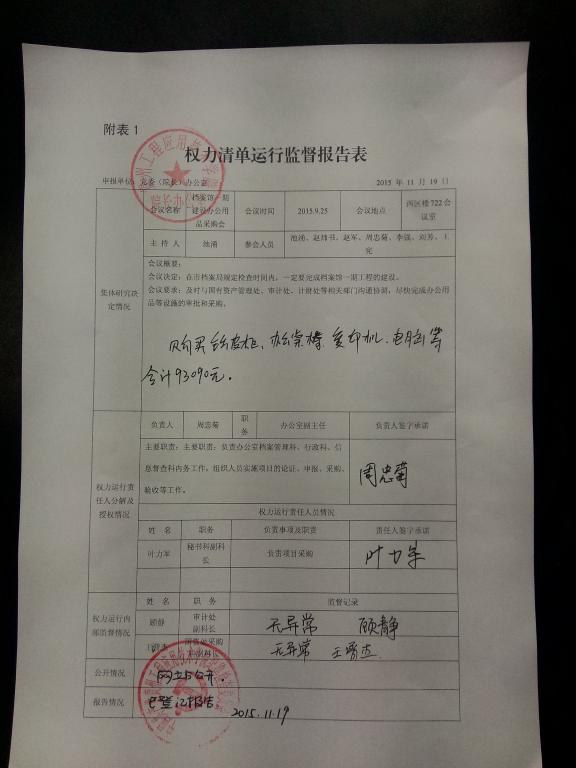 附表 1
权力清单运行监督报告表
申报单位：党委（院长）办公室 2015 年 11 月 19 日
院长办公
会议名称 档案馆一期建设办公用品采购会 会议时间 2015.9.25 会议地点 西区楼722会议室
主 持 人 池涌 参会人员 池涌、赵炜书、赵军、周忠菊、李强、刘芳、王
集体研究决定情况
会议概要：
会议决定：在市档案局规定检查时间内，一定要完成档案馆一期工程的建设。
会议要求：及时与国有资产管理处、审计处、计财处等相关部门沟通协调，尽快完成办公用
品等设施的审批和采购。
购买 柜、办公桌椅、复印机、电脑等
合计93090元。
权力运行责任人分解及授权情况
负责人 周忠菊 职务 办公室副主任 负责人签字承诺
主要职责：主要职责：负责办公室档案管理科、行政科、信
息督查科内务工作，组织人员实施项目的论证、申报、采购、
验收等工作。
周忠菊
权力运行责任人员情况
姓 名 职务 负责事项及职责 责任人签字承诺
叶力军 秘书科副科长 负责项目采购 叶力军
权力运行内部监督情况
姓 名 职 务 监督记录
顾静 审计处副科长 无异常 顾静
无异常
公开情况 网站公开.
报告情况 已登记报告 2015.11.19